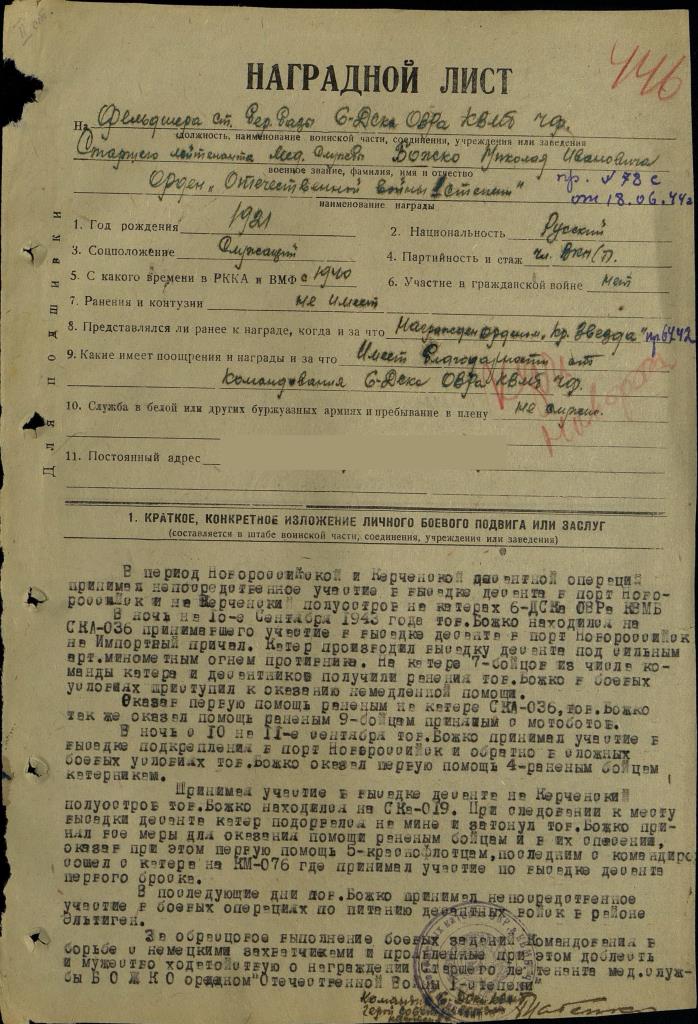 446
НАГРАДНОЙ ЛИСТ
На Фельдшера ст. Бер. Базы 6-Дска ОВРа КВМБ чф.
(должность, наименование воинской части, соединения, учреждения или заведения
Старшего лейтенанта Мед. Службы Божко Николая Ивановича
военное звание, фамилия, имя и отчество
Орден „Отечественной войны I степени"
пр. № 78 с
наименование награды
от 18.06.44г
1. Год рождения 1921
2. Национальность Русский
3. Соцположение Служащий
4. Партийность и стаж чл. ВКП(б).
5. С какого времени в РККА и ВМФ с 1940
6. Участие в гражданской войне нет
7. Ранения и контузии не имеет
8. Представлялся ли ранее к награде, когда и за что Награжден орденом „Кр. Звезда"
9. Какие имеет поощрения и награды и за что Имеет Благодарности от
Командования 6-Дска ОВРа КВМБ чф.
10. Служба в белой или других буржуазных армиях и пребывание в плену не служил.
11. Постоянный адрес
Для подшивки
1. КРАТКОЕ, КОНКРЕТНОЕ ИЗЛОЖЕНИЕ ЛИЧНОГО БОЕВОГО ПОДВИГА ИЛИ ЗАСЛУГ
(составляется в штабе воинской части, соединения, учреждения или заведения)
В период Новороссийской и Керченской десантной операций
принимал непосредственное участие в высадке десанта в порт Ново-
российск и на Керченский полуостров на катерах 6-ДСКа ОВРа КВМБ
В ночь на 10-е Сентября 1943 года тов.Божко находился на
СКА-036 принимавшего участие в высадке десанта в порт Новороссийск
на Импортный причал. Катер производил высадку десанта под сильным
арт.минометным огнем противника. На катере 7-бойцов из числа ко-
манды катера и десантников получили ранения тов.Божко в боевых
условиях приступил к оказанию немедленной помощи.
Оказав первую помощь раненым на катере СКА-036,тов.Божко
так же оказал помощь раненым 9-бойцам принятым с мотоботов.
В ночь с 10 на 11-е сентября тов.Божко принимал участие в
высадке подкрепления в порт Новороссийск и обратно в сложных
боевых условиях тов.Божко оказал первую помощь 4-раненым бойцам
катерникам.
Принимая участие в высадке десанта на Керченский
полуостров тов.Божко находился на СКа-019. При следовании к месту
высадки десанта катер подорвался на мине и затонул тов.Божко при-
нял все меры для оказания помощи раненым бойцам и в их спасении,
оказав при этом первую помощь 5-краснофлотцам,последним с командиро
сошел с катера на КМ-076 где принимал участие по высадке десанта
первого броска.
В последующие дни тов.Божко принимал непосредственное
участие в боевых операциях по питанию десантных войск в районе
Эльтиген.
За образцовое выполнение боевых заданий Командования в
борьбе с немецкими захватчиками и проявленные при этом доблесть
и мужество ходатайствую о награждении Старшего лейтенанта мед.служ-
бы Б О Ж К О орденом "Отечественной Войны I-степени"
Командир 6-Дска КВМБ
Герой Советского Союза